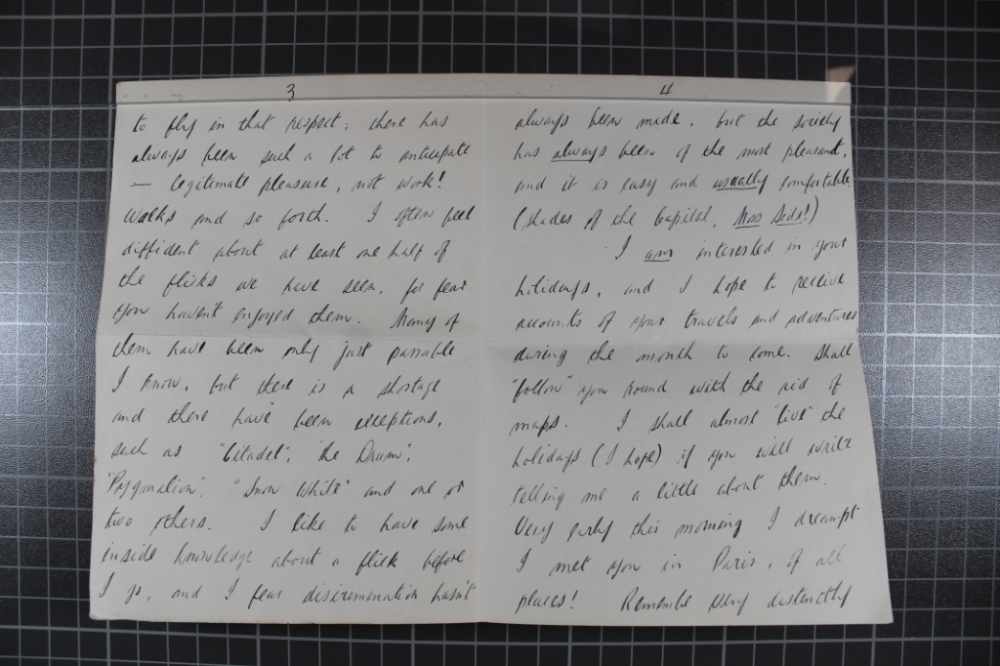 3
to fly in that respect; there has
always been such a lot to anticipate
— legitimate pleasure, not work!
Walks and so forth. I often feel
diffident about at least one half of
the flicks we have seen, for fear
you haven't enjoyed them. Many of
them have been only just passable
I know, but there is a shortage
and there have been exceptions,
such as "Citadel", "The Drum",
"Pygmalion", "Snow White" and one or
two others. I like to have some
inside knowledge about a flick before
I go, and I fear discrimination hasn't
4
always been made, but the society
has always been of the most pleasant,
and it is easy and usually comfortable
(Shades of the Capitol, Miss!)
I am interested in your
holidays, and I hope to receive
accounts of your travels and adventures
during the month to come. Shall
"follow" you round with the aid of
maps. I shall almost "live" the
holidays (I hope) if you will write
telling me a little about them.
Very early this morning I dreampt
I met you in Paris, of all
places! Remember very distinctly